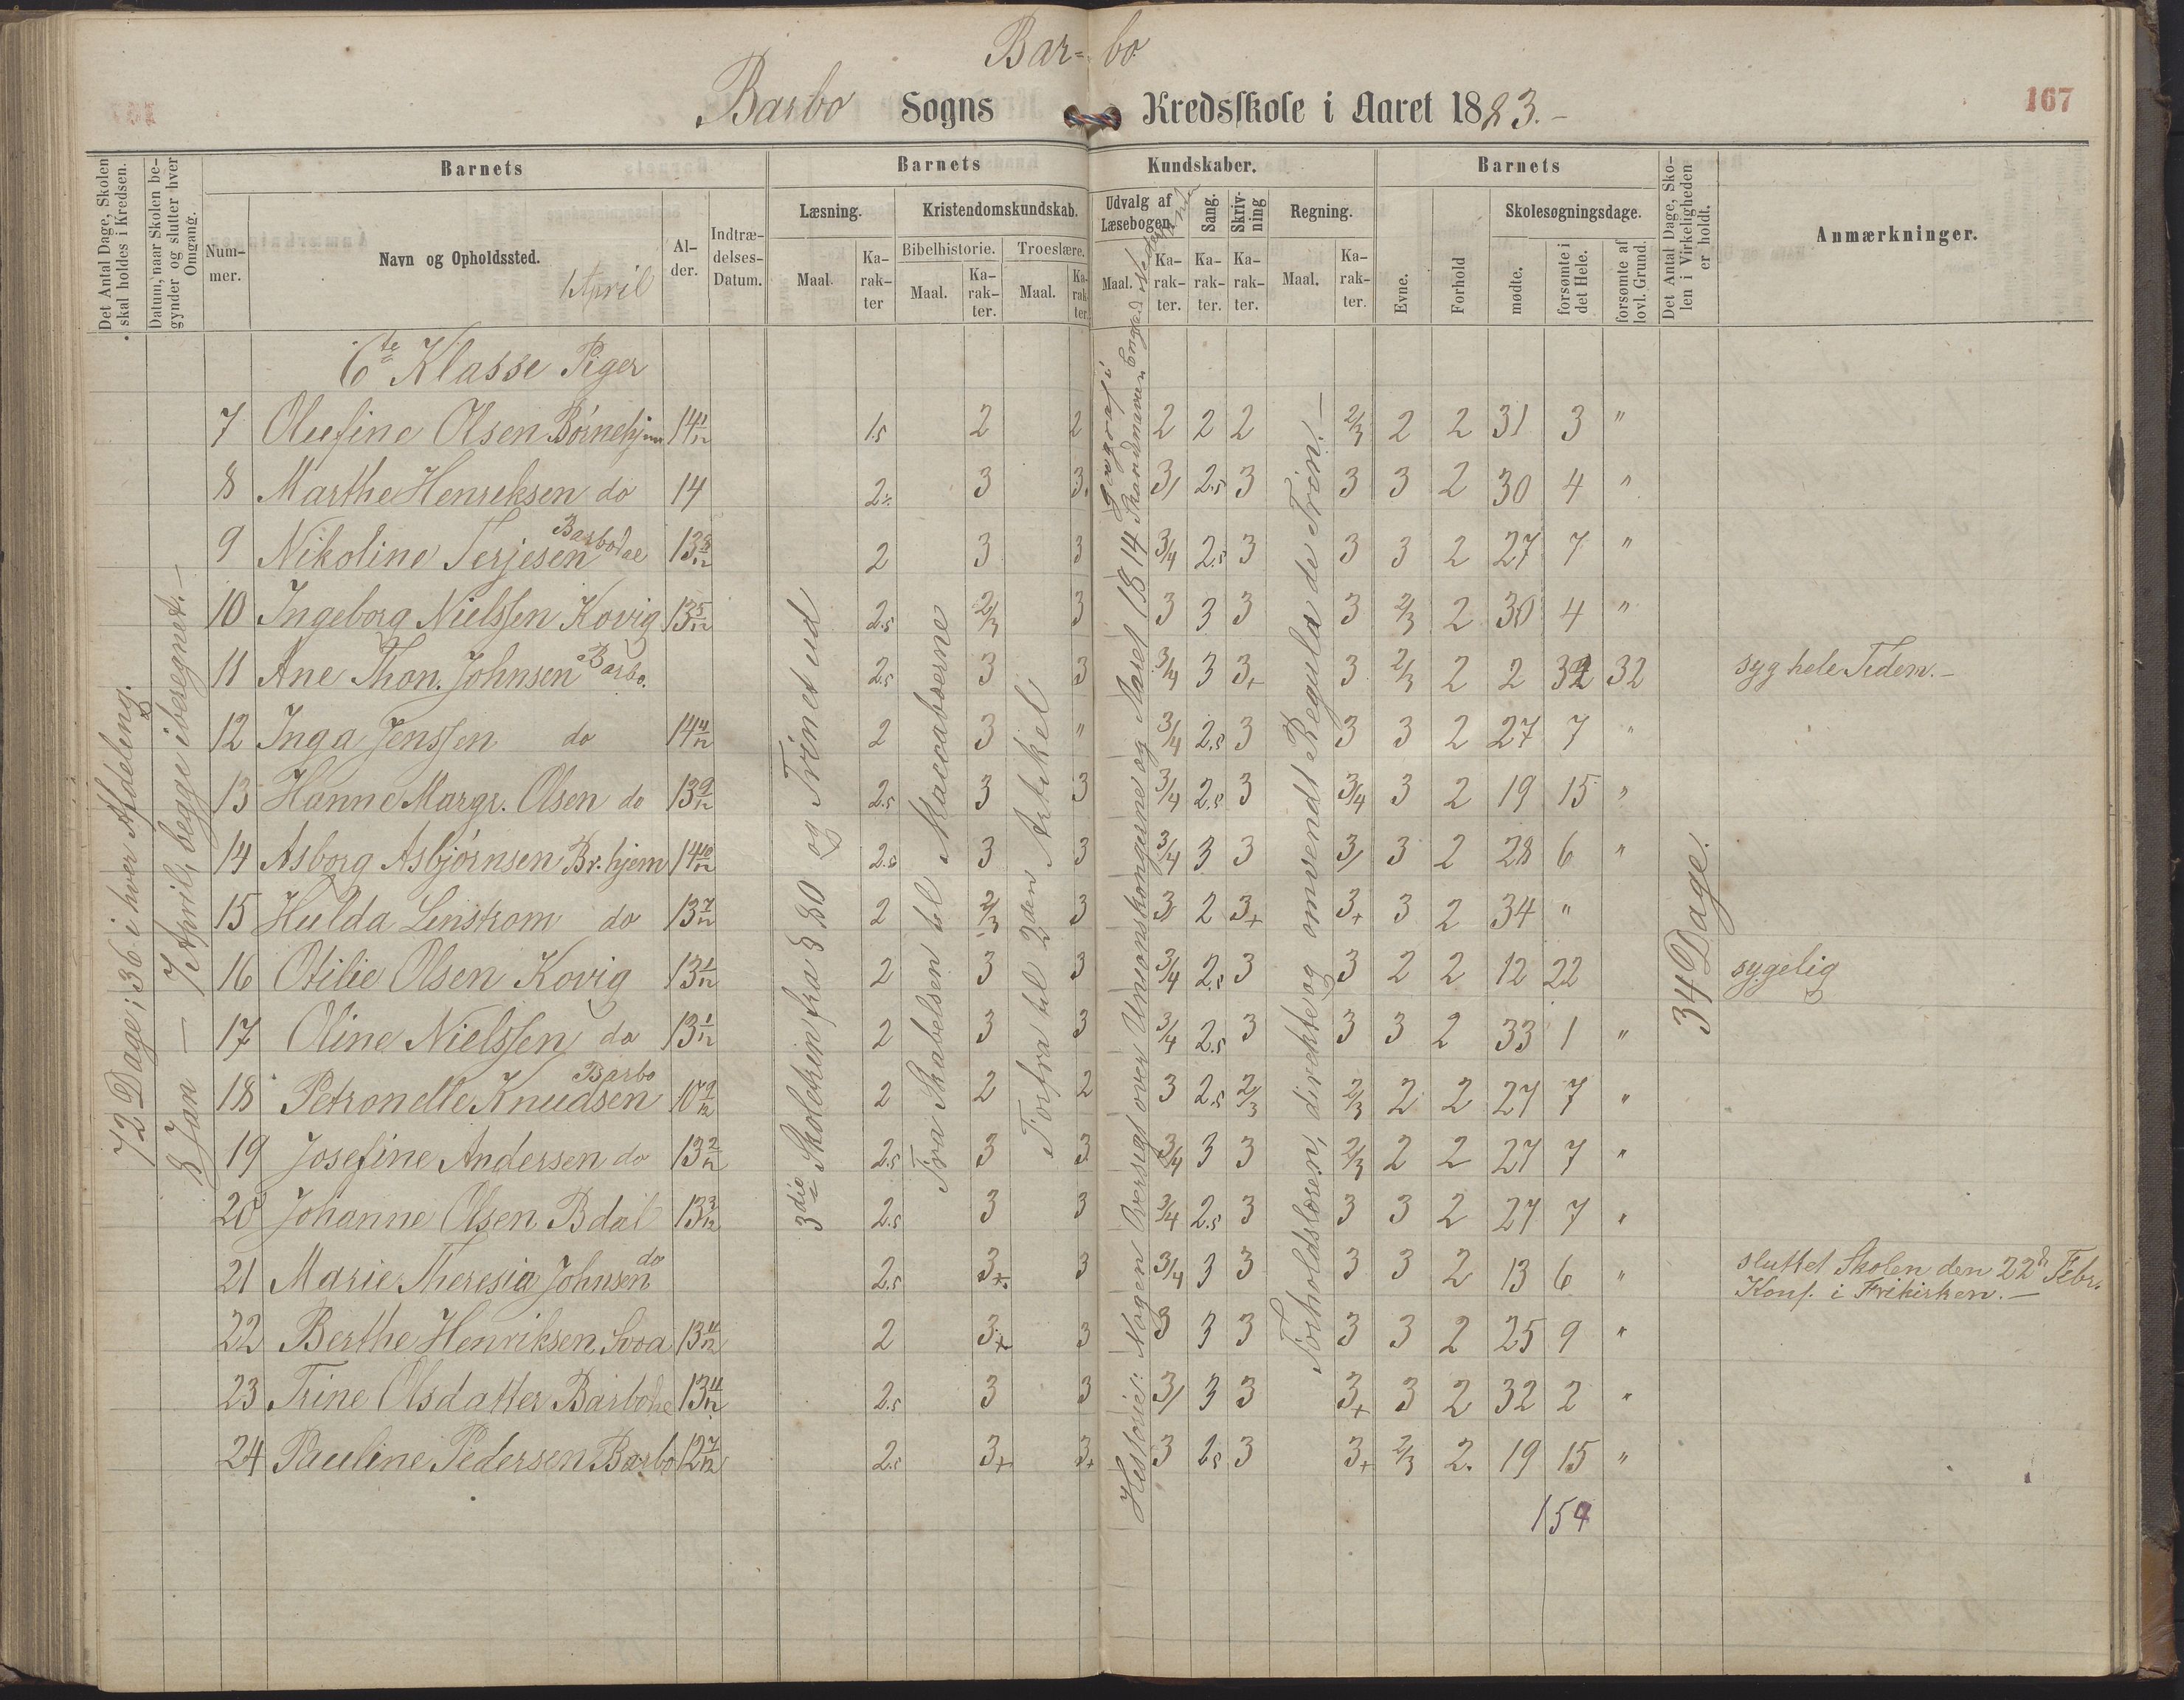 Bar- bo
Barbo Sogns Kredsskole i Aaret 1883.-
167
Det Antal Dage, Skolen skal holdes i Kredsen.
Datum, naar Skolen begynder og slutter hver Omgang.
Barnets
Barnets
Kundskaber.
Barnets
Det Antal Dage, Skolen i Virkeligheden er holdt.
Anmærkninger.
Nummer.
Navn og Opholdssted.
April
Alder.
Indtrædelses-Datum.
Læsning.
Kristendomskundskab.
Udvalg af Læsebogen.
Sang.
Skrivning
Regning.
Evne.
Forhold
Skolesøgningsdage.
Bibelhistorie. Troeslære.
Maal. Karakter Maal. Karakter. Maal. Karakter. Maal. Karakter. Karakter. Karakter. Maal. Karakter.
mødte. forsømte i det Hele. forsømte af lovl. Grund.
72 Dage; 36 i hver Afdeling.
8 Jan — 7 April, begge iberegnet.-
3die Skoletrin fra § 80 og Trinet ud
Fra Skabelsen til Maccabæerne
Forfra til 2den Artikel
Historie: Nogen Oversigt over Unionskongerne og Aaret 1814
Forholdslæren, direkte og omvendt Regula de Trin.-
34 Dage.
6te Klasse Piger
7 Olufine Olsen Börnehjem 14 1/12 1.5 2 2 2 2 2 2/3 2 2 31 3 "
8 Marthe Henriksen do 14 3 3. 3/ 2.5 3 3 3 2 30 4 "
9 Nikoline Terjesen Barbodal 13 8/12 2 3 3 3/4 2.5 3 3 3 2 27 7 "
10 Ingeborg Nielssen Kovig 13 5/12 2.5 2/3 3 3 3 3 3 2/3 2 30 4 "
11 Ane Thon. Johnsen Barbo. 2.5 3 3 3/4 3 3+ 3 2/3 2 2 32 32 syg hele Tiden.-
12 Inga Jenssen do 14 4/12 2 3 " 3/4 2.5 3 3 3 2 27 7 "
13 Hanne Margr. Olsen do 13 9/12 2.5 3 3 3/4 2.5 3 3/4 3 2 19 15 "
14 Asborg Asbjörnsen Br. hjem 14 10/12 2.5 3 3 3/4 3 3 3/ 3 2 28 6 "
15 Hulda Lenstrom do 13 7/12 2 2/3 3 3/ 2 3+ 3+ 3 2 34 "
16 Otilie Olsen Kovig 13 1/12 2 3 3 3/4 2.5 3 3 2 2 12 22 sygelig
17 Oline Nielssen do 13 1/12 2 3 3 3/4 2.5 3 3 3 2 33 1 "
18 Petronelle Knudsen Barbo 10 9/12 2 2 2 3 2.5 2/3 2/3 2 2 27 7 "
19 Josefine Andersen do 13 2/12 2.5 3 3 3/4 3 3 2/3 2 2 27 7 "
20 Johanne Olsen Bdal 13 3/12 2.5 3 3 3/4 2.5 3 3 3 2 27 7 "
21 Marie Theresia Johnsen do 2.5 3+ 3 3/4 3 3 3 3 2 13 6 " sluttet Skolen den 22d Febr.
Konf. i Frikirken.-
22 Berthe Henriksen 13 2 3+ 3 3 3 3 3 3 2 25 9 "
23 Trine Olsdatter 13 11/12 2.5 3 3 3/ 3 3 3+ 3 2 32 2 "
24 Pauline Pedersen Barbo 12 7/12 2.5 3+ 3+ 3 2.5 3 3+ 2/3 2. 19 15 "
154